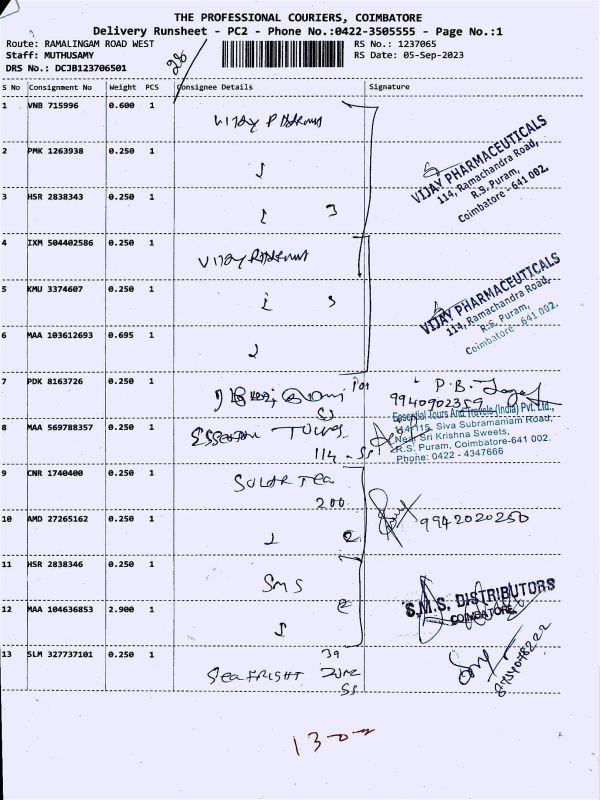 THE PROFESSIONAL COURIERS, COIMBATORE
Delivery Runsheet - PC2 - Phone No.:0422-3505555 - Page No.:1
Route: RAMALINGAM ROAD WEST
RS No.: 1237065
Staff: MUTHUSAMY
RS Date: 05-Sep-2023
DRS No.: DCJB123706501
28
S No Consignment No Weight PCS Consignee Details Signature
1 VNB 715996 0.600 1
VIJAY PHARMACEUTICALS
114, Ramachandra Road,
R.S. Puram,
Coimbatore - 641 002.
2 PMK 1263938 0.250 1
3 HSR 2838343 0.250 1 3
4 IXM 504402586 0.250 1
5 KMU 3374607 0.250 1 3
VIJAY PHARMACEUTICALS
114, Ramachandra Road,
R.S. Puram,
Coimbatore - 641 002.
6 MAA 103612693 0.695 1
7 PDK 8163726 0.250 1
P.B.
9940902359
8 MAA 569788357 0.250 1 TOURS
114 - SS
Essential Tours And Travels (India) Pvt. Ltd.,
114-115, Siva Subramaniam Road,
Near Sri Krishna Sweets,
R.S. Puram, Coimbatore-641 002.
Phone: 0422 - 4347666
9 CNR 1740400 0.250 1 SOLAR TEA
200
10 AMD 27265162 0.250 1 2
9942020250
11 HSR 2838346 0.250 1 SMS
S.M.S. DISTRIBUTORS
COIMBATORE
12 MAA 104636853 2.900 1 2
13 SLM 327737101 0.250 1 39
SEAFRIGHT
SS
1300